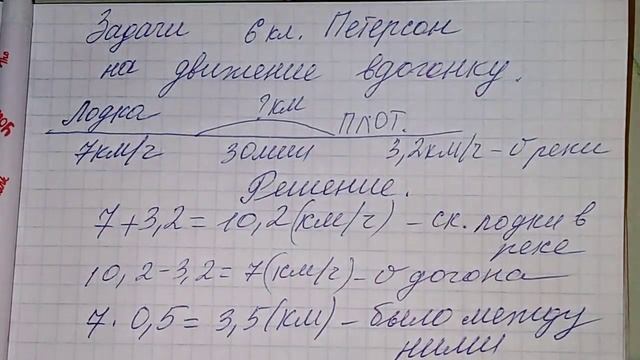 Задачи 6 кл. Петерсон
на движение вдогонку.
? км
Лодка ПЛОТ.
7км/ч 30мин 3,2км/ч – υ реки
Решение.
7+3,2=10,2(км/ч) – ск. лодки в
реке
10,2-3,2=7(км/ч) – υ догона
7·0,5=3,5(км) – было между
ними